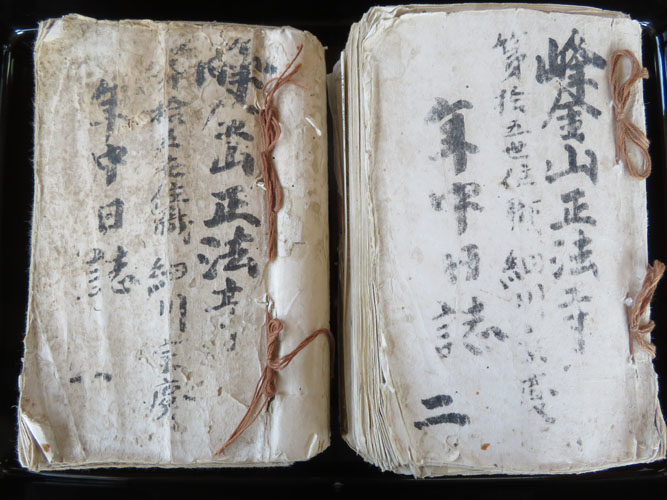 峰金山正法寺
第拾五世住職 細川 慶
年中日誌 一
峰金山正法寺
第拾五世住職 細川
年中日誌 二